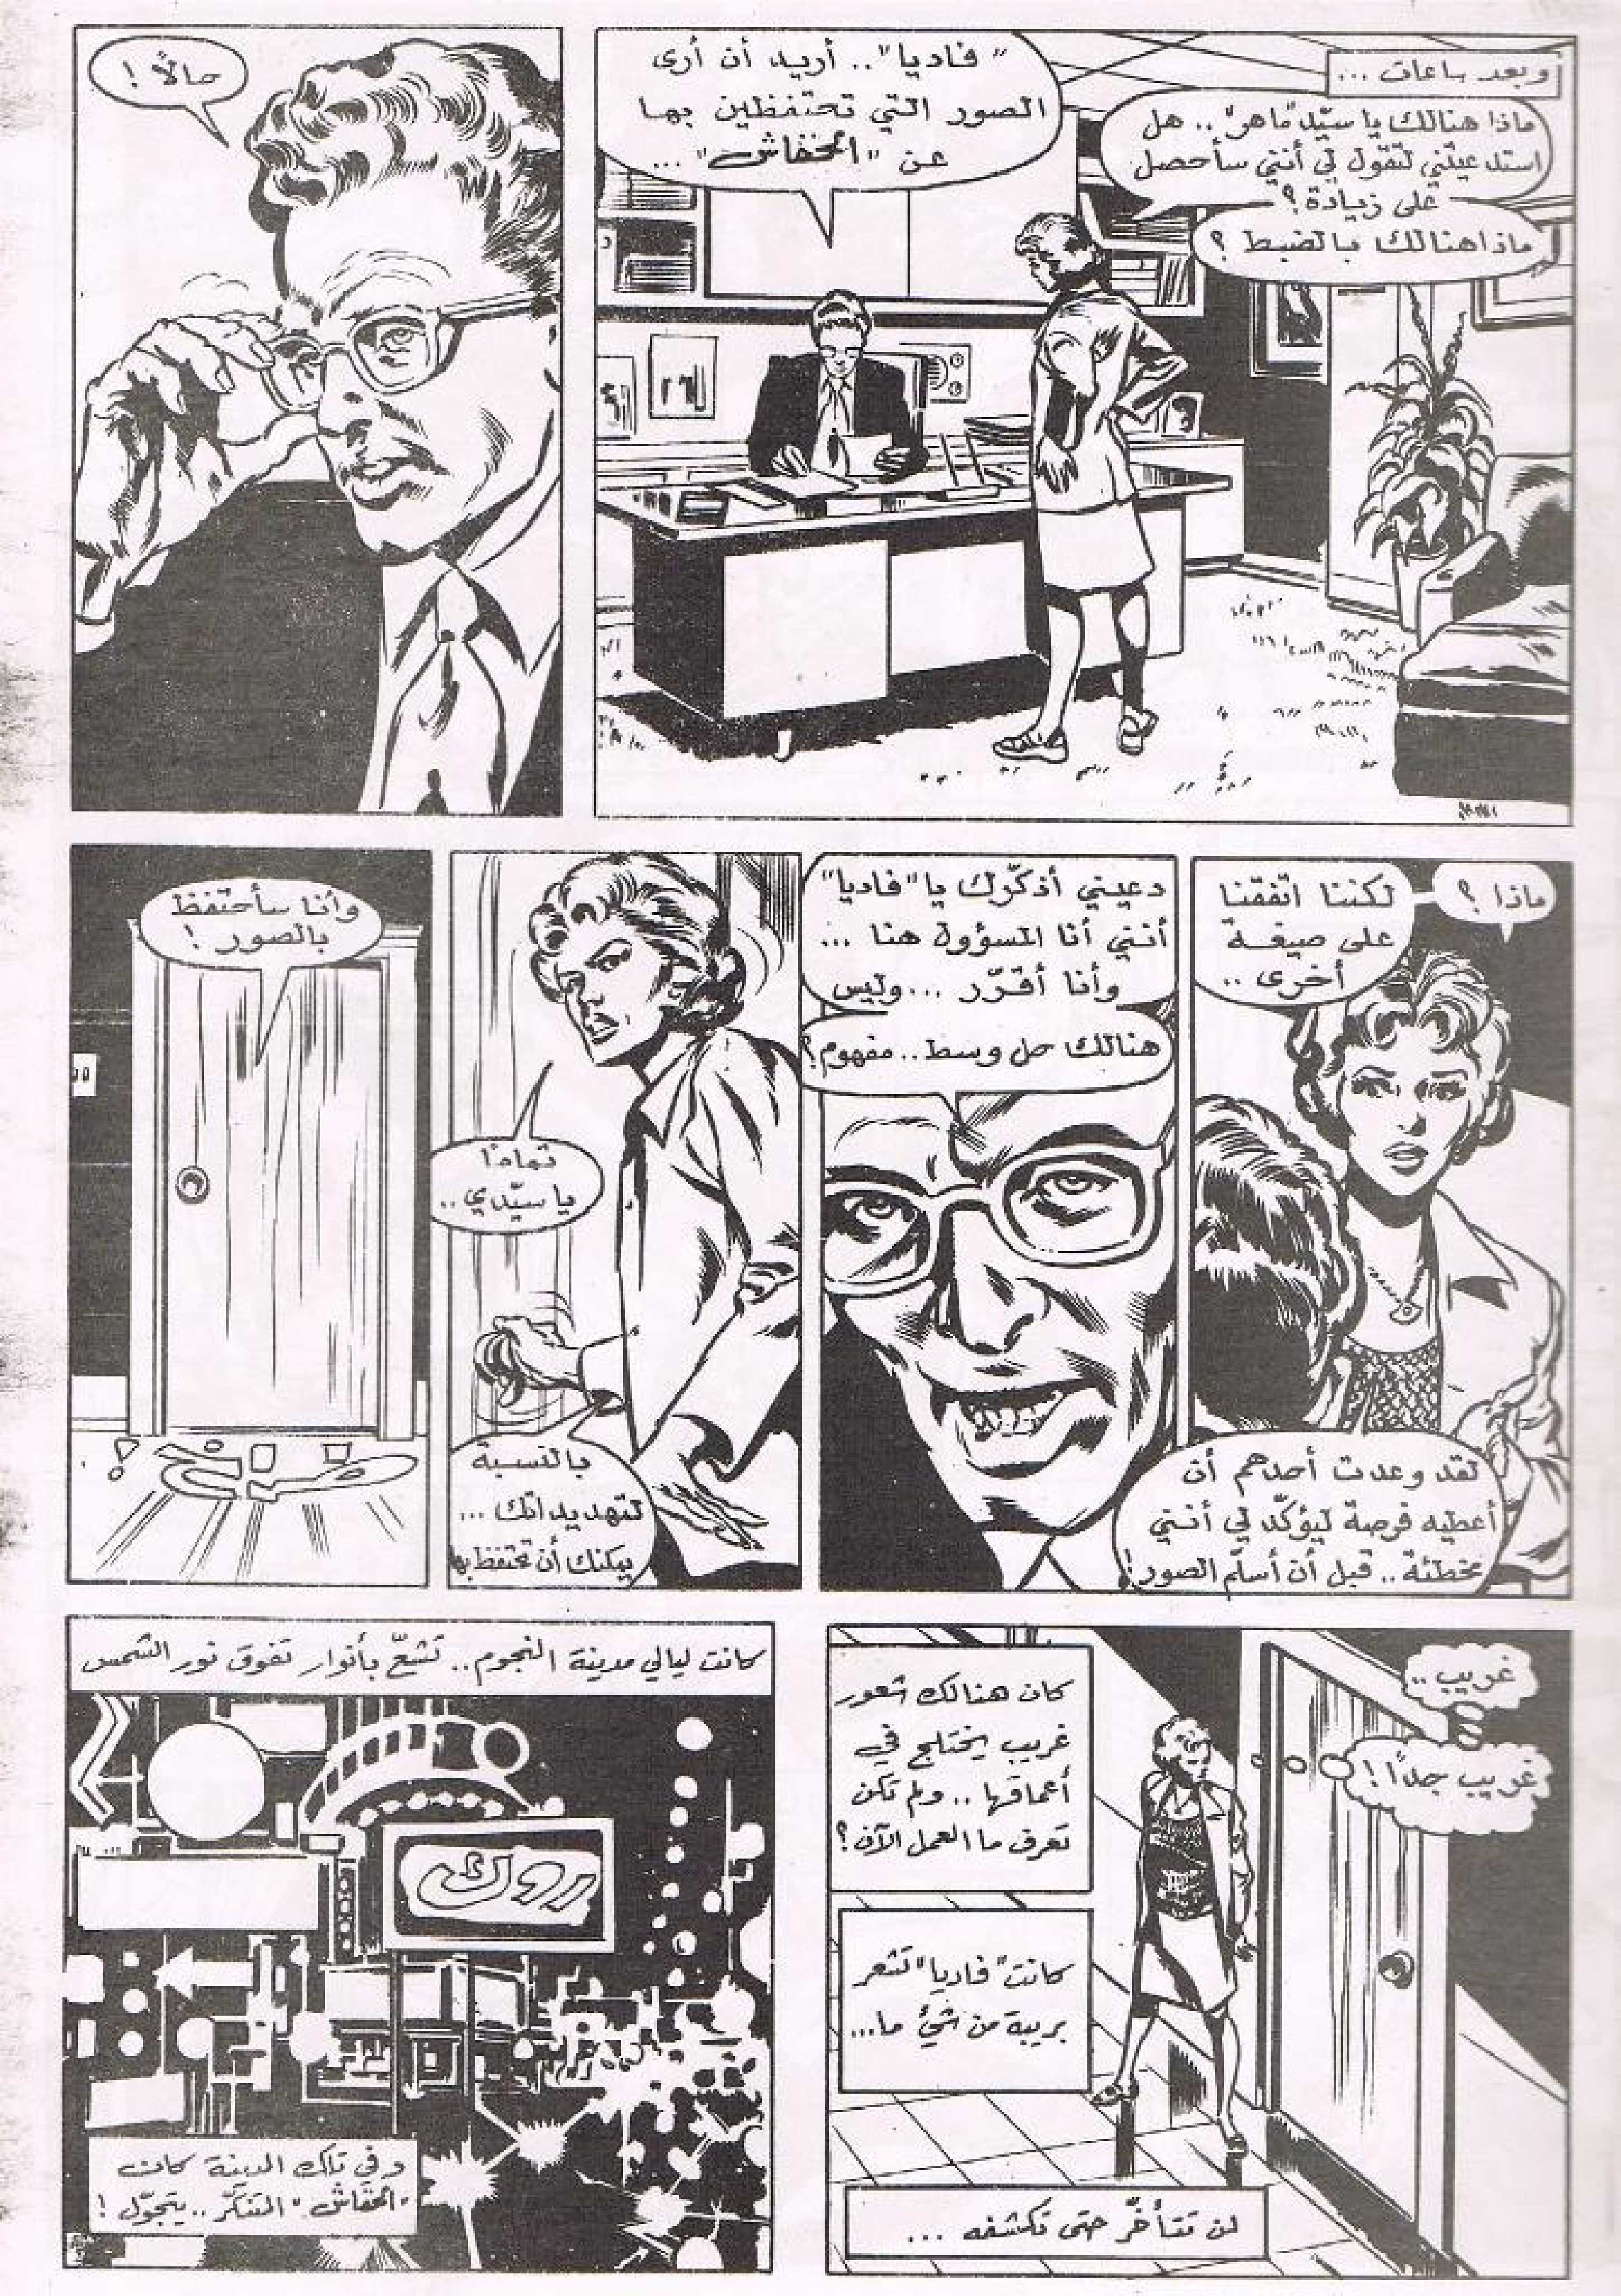 وبعد ساعات ...
ماذا هنالك يا سيّد "ماهر" .. هل
استدعيتني لتقول لي أنني سأحصل
على زيادة؟
ماذا هنالك بالضبط ؟
"فاديا".. أريد أن أرى
الصور التي تحتفظين بها
عن "الخفاش" ...
حالاً !
ماذا ؟
لكننا اتفقنا
على صيغة
أخرى ..
لقد وعدت أحدهم أن
أعطيه فرصة ليؤكّد لي أنني
مخطئة .. قبل أن أسلّم الصور!
دعيني أذكّرك يا "فاديا"
أنني أنا المسؤول هنا ...
وأنا أقرّر ... وليس
هنالك حل وسط .. مفهوم؟
تمامًا
يا سيّدي ..
بالنسبة
لتهديداتك ...
يمكنك أن تحتفظ بها
وأنا سأحتفظ
بالصور !
غريب ..
غريب جداً !
كان هنالك شعور
غريب يختلج في
أعماقها .. ولم تكن
تعرف ما العمل الآن؟
كانت "فاديا" تشعر
بريبة من شيء ما...
لن تتأخّر حتى تكشفه ...
كانت ليالي مدينة النجوم .. تشعّ بأنوار تفوق نور الشمس
روك
وفي تلك المدينة كان
"الخفاش" المتنكّر .. يتجوّل !